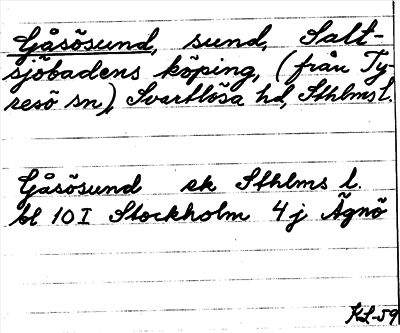 Gåsösund, sund, Salt-
sjöbadens köping, (från Ty-
resö sn), Svartlösa hd, Sthlms l.
Gåsösund ek Sthlms l.
bl 10 I Stockholm 4 j Ägnö
KL-59